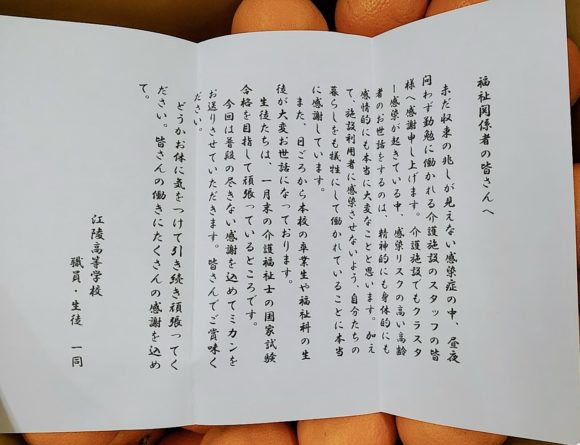 福祉関係者の皆さんへ
未だ収束の兆しが見えない感染症の中、昼夜
問わず勤勉に働かれる介護施設のスタッフの皆
様へ感謝申し上げます。介護施設でもクラスタ
ー感染が起きている中、感染リスクの高い高齢
者のお世話をするのは、精神的にも身体的にも
感情的にも本当に大変なことと思います。加え
て、施設利用者に感染させないよう、自分たちの
暮らしをも犠牲にして働かれていることに本当
に感謝しています。
また、日ごろから本校の卒業生や福祉科の生
徒が大変お世話になっております。
生徒たちは、一月末の介護福祉士の国家試験
合格を目指して頑張っているところです。
今回は普段の尽きない感謝を込めてミカンを
お送りさせていただきます。皆さんでご賞味く
ださい。
どうかお体に気をつけて引き続き頑張ってく
ださい。皆さんの働きにたくさんの感謝を込め
て。
江陵高等学校
職員・生徒　一同